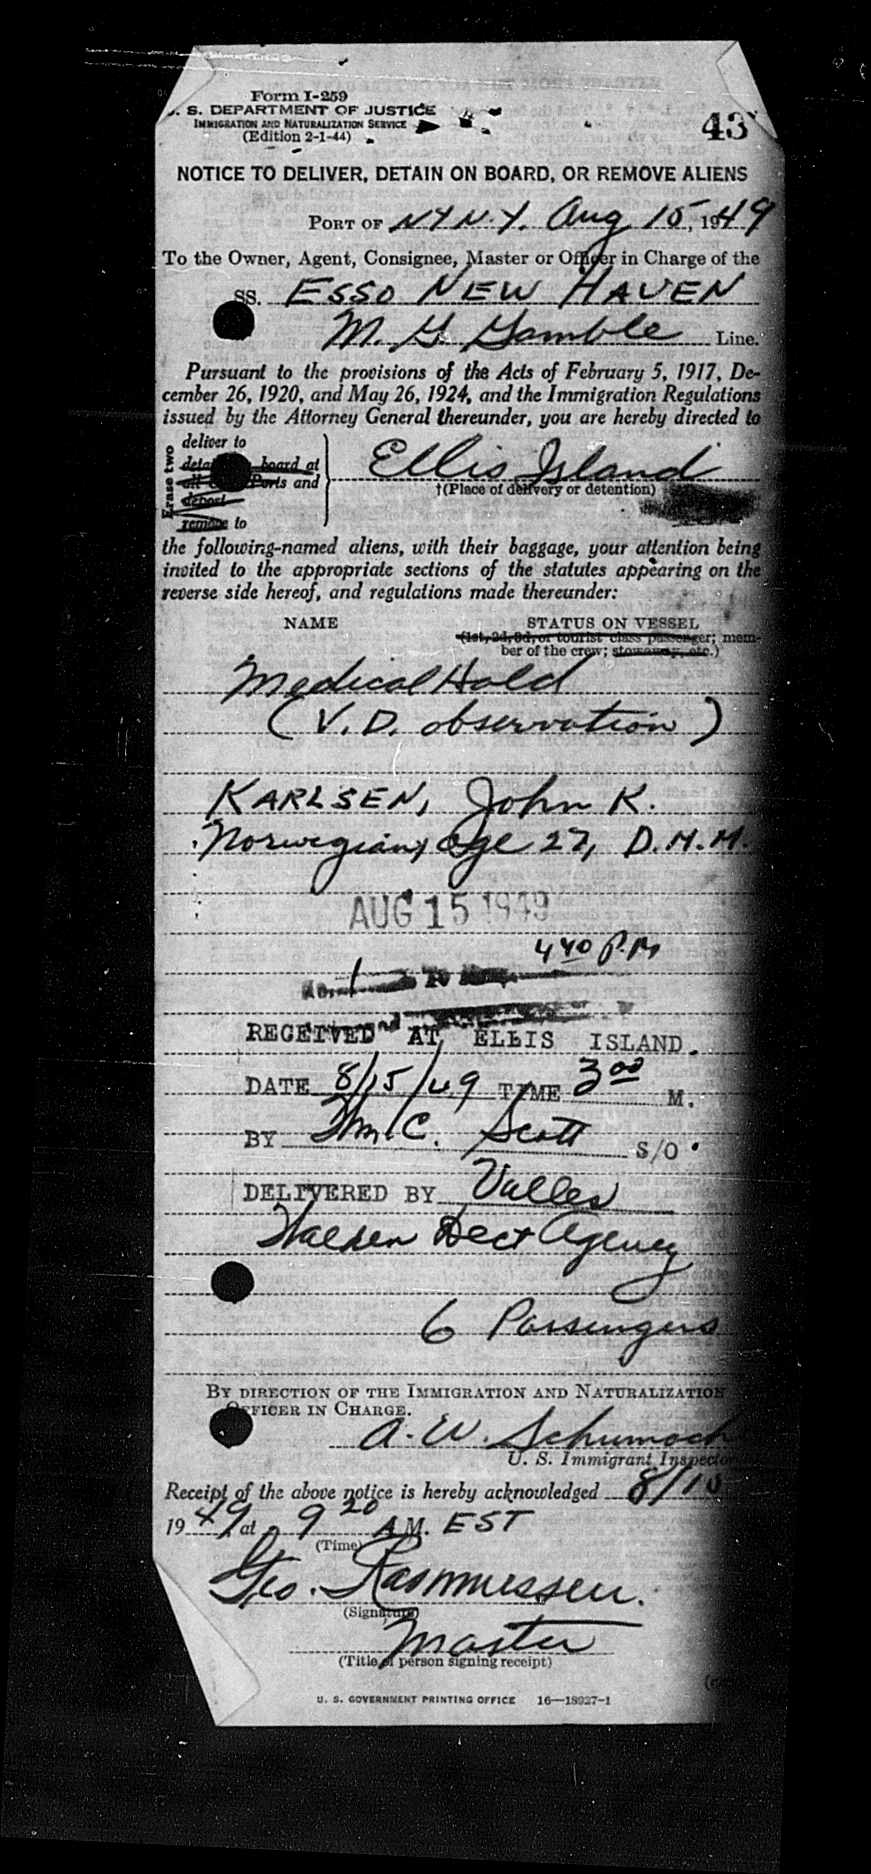 Form I-259
U. S. DEPARTMENT OF JUSTICE
IMMIGRATION AND NATURALIZATION SERVICE
(Edition 2-1-44)
43
NOTICE TO DELIVER, DETAIN ON BOARD, OR REMOVE ALIENS
PORT OF NY N.Y. Aug 15, 1949
To the Owner, Agent, Consignee, Master or Officer in Charge of the
SS. ESSO NEW HAVEN
M. G. Gamble Line.
Pursuant to the provisions of the Acts of February 5, 1917, De-
cember 26, 1920, and May 26, 1924, and the Immigration Regulations
issued by the Attorney General thereunder, you are hereby directed to
Erase two
deliver to
board at
Ports and
deport
remove to
Ellis Island
†(Place of delivery or detention)
the following-named aliens, with their baggage, your attention being
invited to the appropriate sections of the statutes appearing on the
reverse side hereof, and regulations made thereunder:
NAME STATUS ON VESSEL
(1st, 2d, 3d, or tourist class passenger; mem-
ber of the crew; stowaway, etc.)
Medical Hold
(V.D. observation)
KARLSEN, John K.
Norwegian, age 27, D.M.M.
AUG 15 1949
4 40 P.M
RECEIVED AT ELLIS ISLAND.
DATE 8/15/49 TIME 3 00 M.
BY Wm. C. Scott S/O.
DELIVERED BY Valles
Dect Agency
6 Passengers
BY DIRECTION OF THE IMMIGRATION AND NATURALIZATION
OFFICER IN CHARGE.
A. W. Schumach
U. S. Immigrant Inspector
Receipt of the above notice is hereby acknowledged 8/15
1949 at 9 20 A.M. EST
(Time)
Geo. Rasmussen.
(Signature)
Master
(Title of person signing receipt)
U. S. GOVERNMENT PRINTING OFFICE 16—18927-1